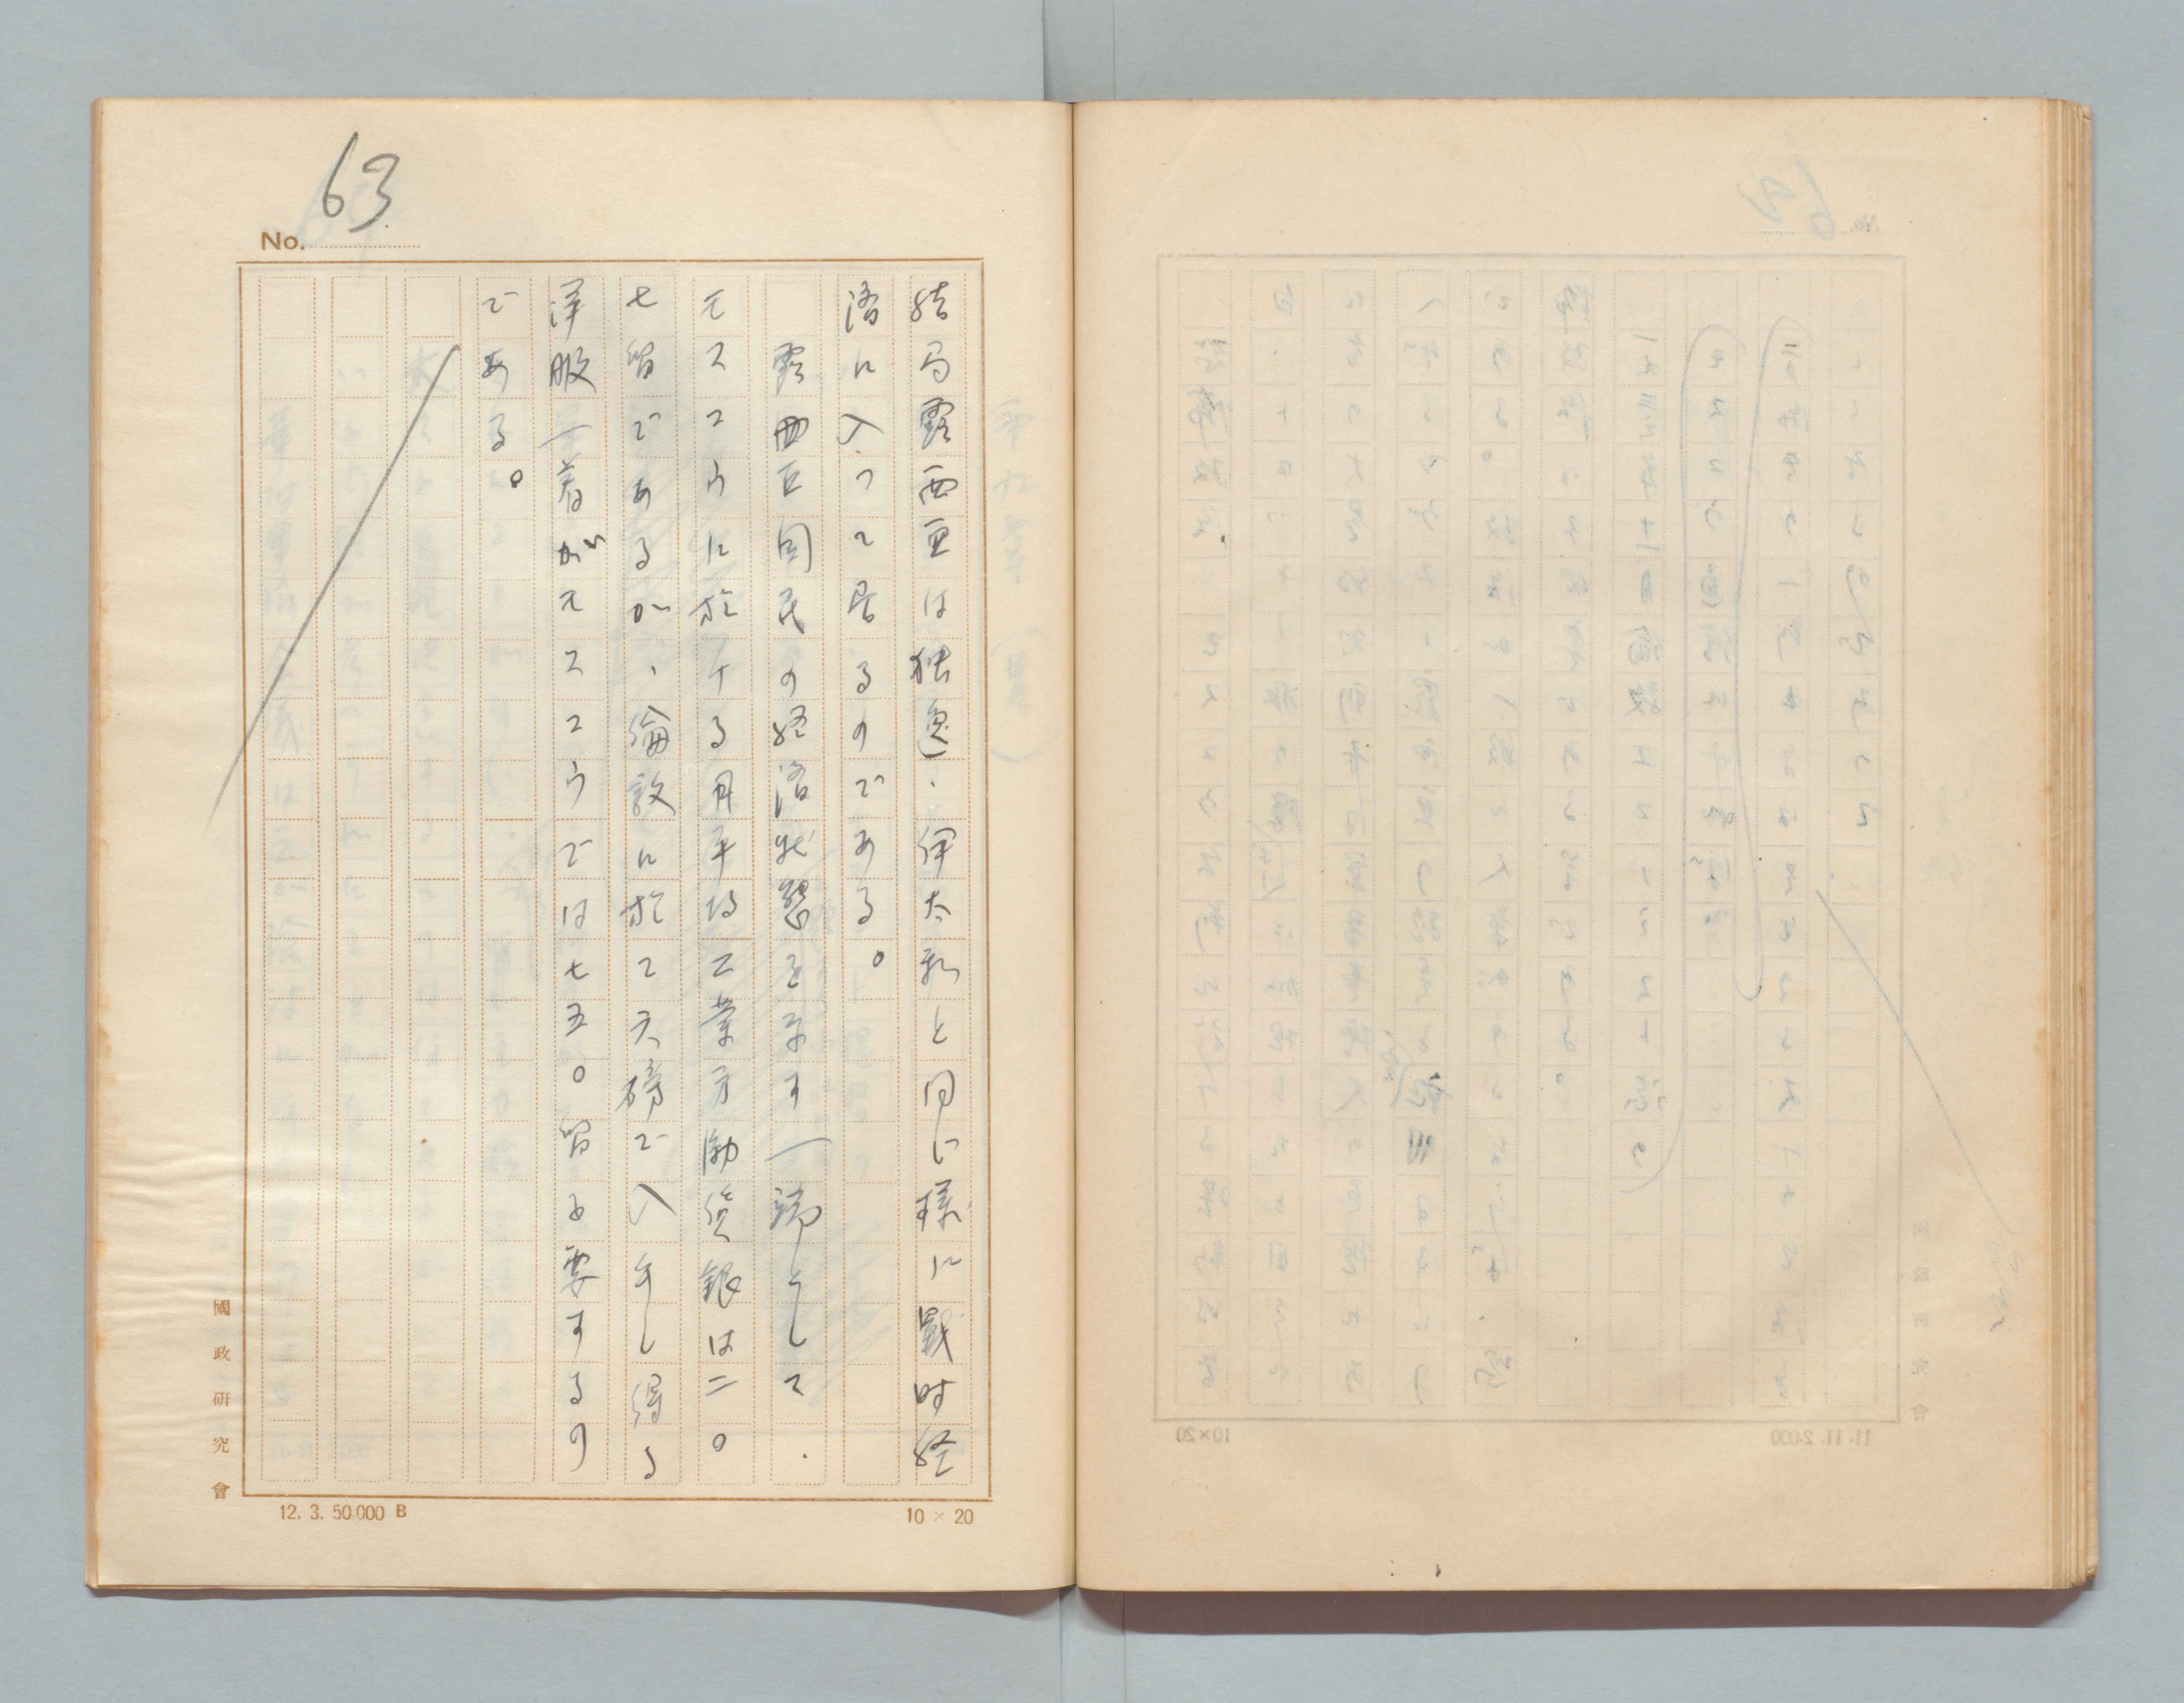 63
No.
結局露西亜は独逸、伊太利と同じ様に戦時経
済に入つて居るのである。
露西亜国民の経済状態を示す一端として、
モスコウに於ける月平均工業労働賃銀は二〇
七留であるが、倫敦に於て六磅で入手し得る
洋服一着がモスコウでは七五〇留を要するの
である。
國政研究會
12. 3. 50,000 B
10 × 20